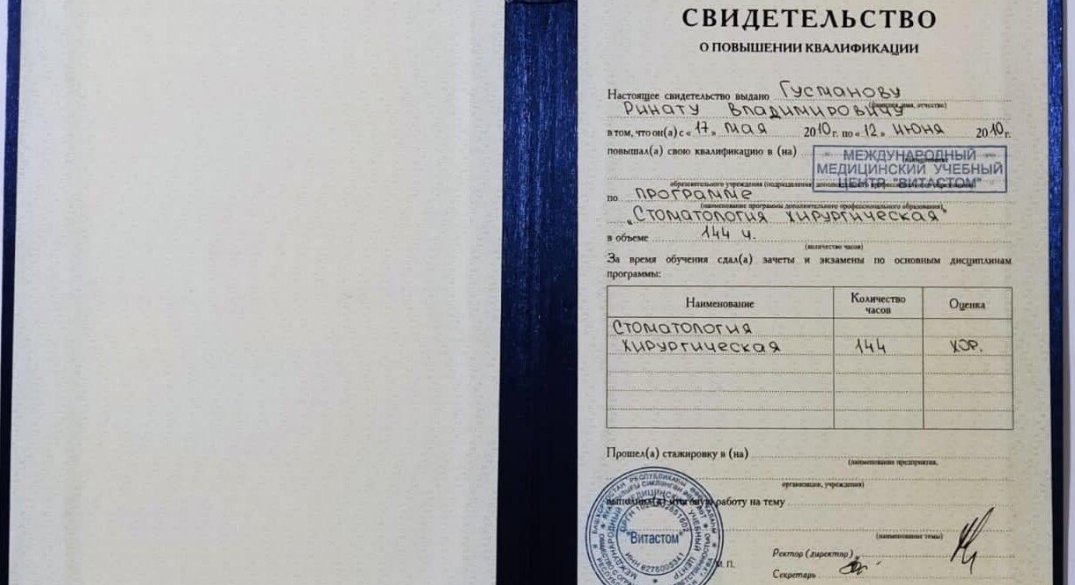 СВИДЕТЕЛЬСТВО
О ПОВЫШЕНИИ КВАЛИФИКАЦИИ
Настоящее свидетельство выдано Гусманову
(фамилия, имя, отчество)
Ринату Владимировичу
в том, что он(а) с « 17 » мая 2010 г. по « 12 » июня 2010 г.
повышал(а) свою квалификацию в (на)
МЕЖДУНАРОДНЫЙ
МЕДИЦИНСКИЙ УЧЕБНЫЙ
ЦЕНТР "ВИТАСТОМ"
образовательного учреждения (подразделения дополнительного профессионального образования)
по программе
(наименование программы дополнительного профессионального образования)
"Стоматология хирургическая"
в объеме 144 ч.
(количество часов)
За время обучения сдал(а) зачеты и экзамены по основным дисциплинам
программы:
Наименование Количество часов Оценка
Стоматология
хирургическая 144 хор.
Прошел(а) стажировку в (на)
(наименование предприятия,
организации, учреждения)
выполнил(а) итоговую работу на тему
(наименование темы)
"Витастом"
М. П.
Ректор (директор)
Секретарь